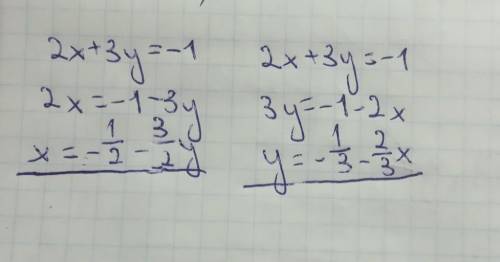 2x+3y=-1
2x=-1-3y
x=-1/2-3/2y
2x+3y=-1
3y=-1-2x
y=-1/3-2/3x